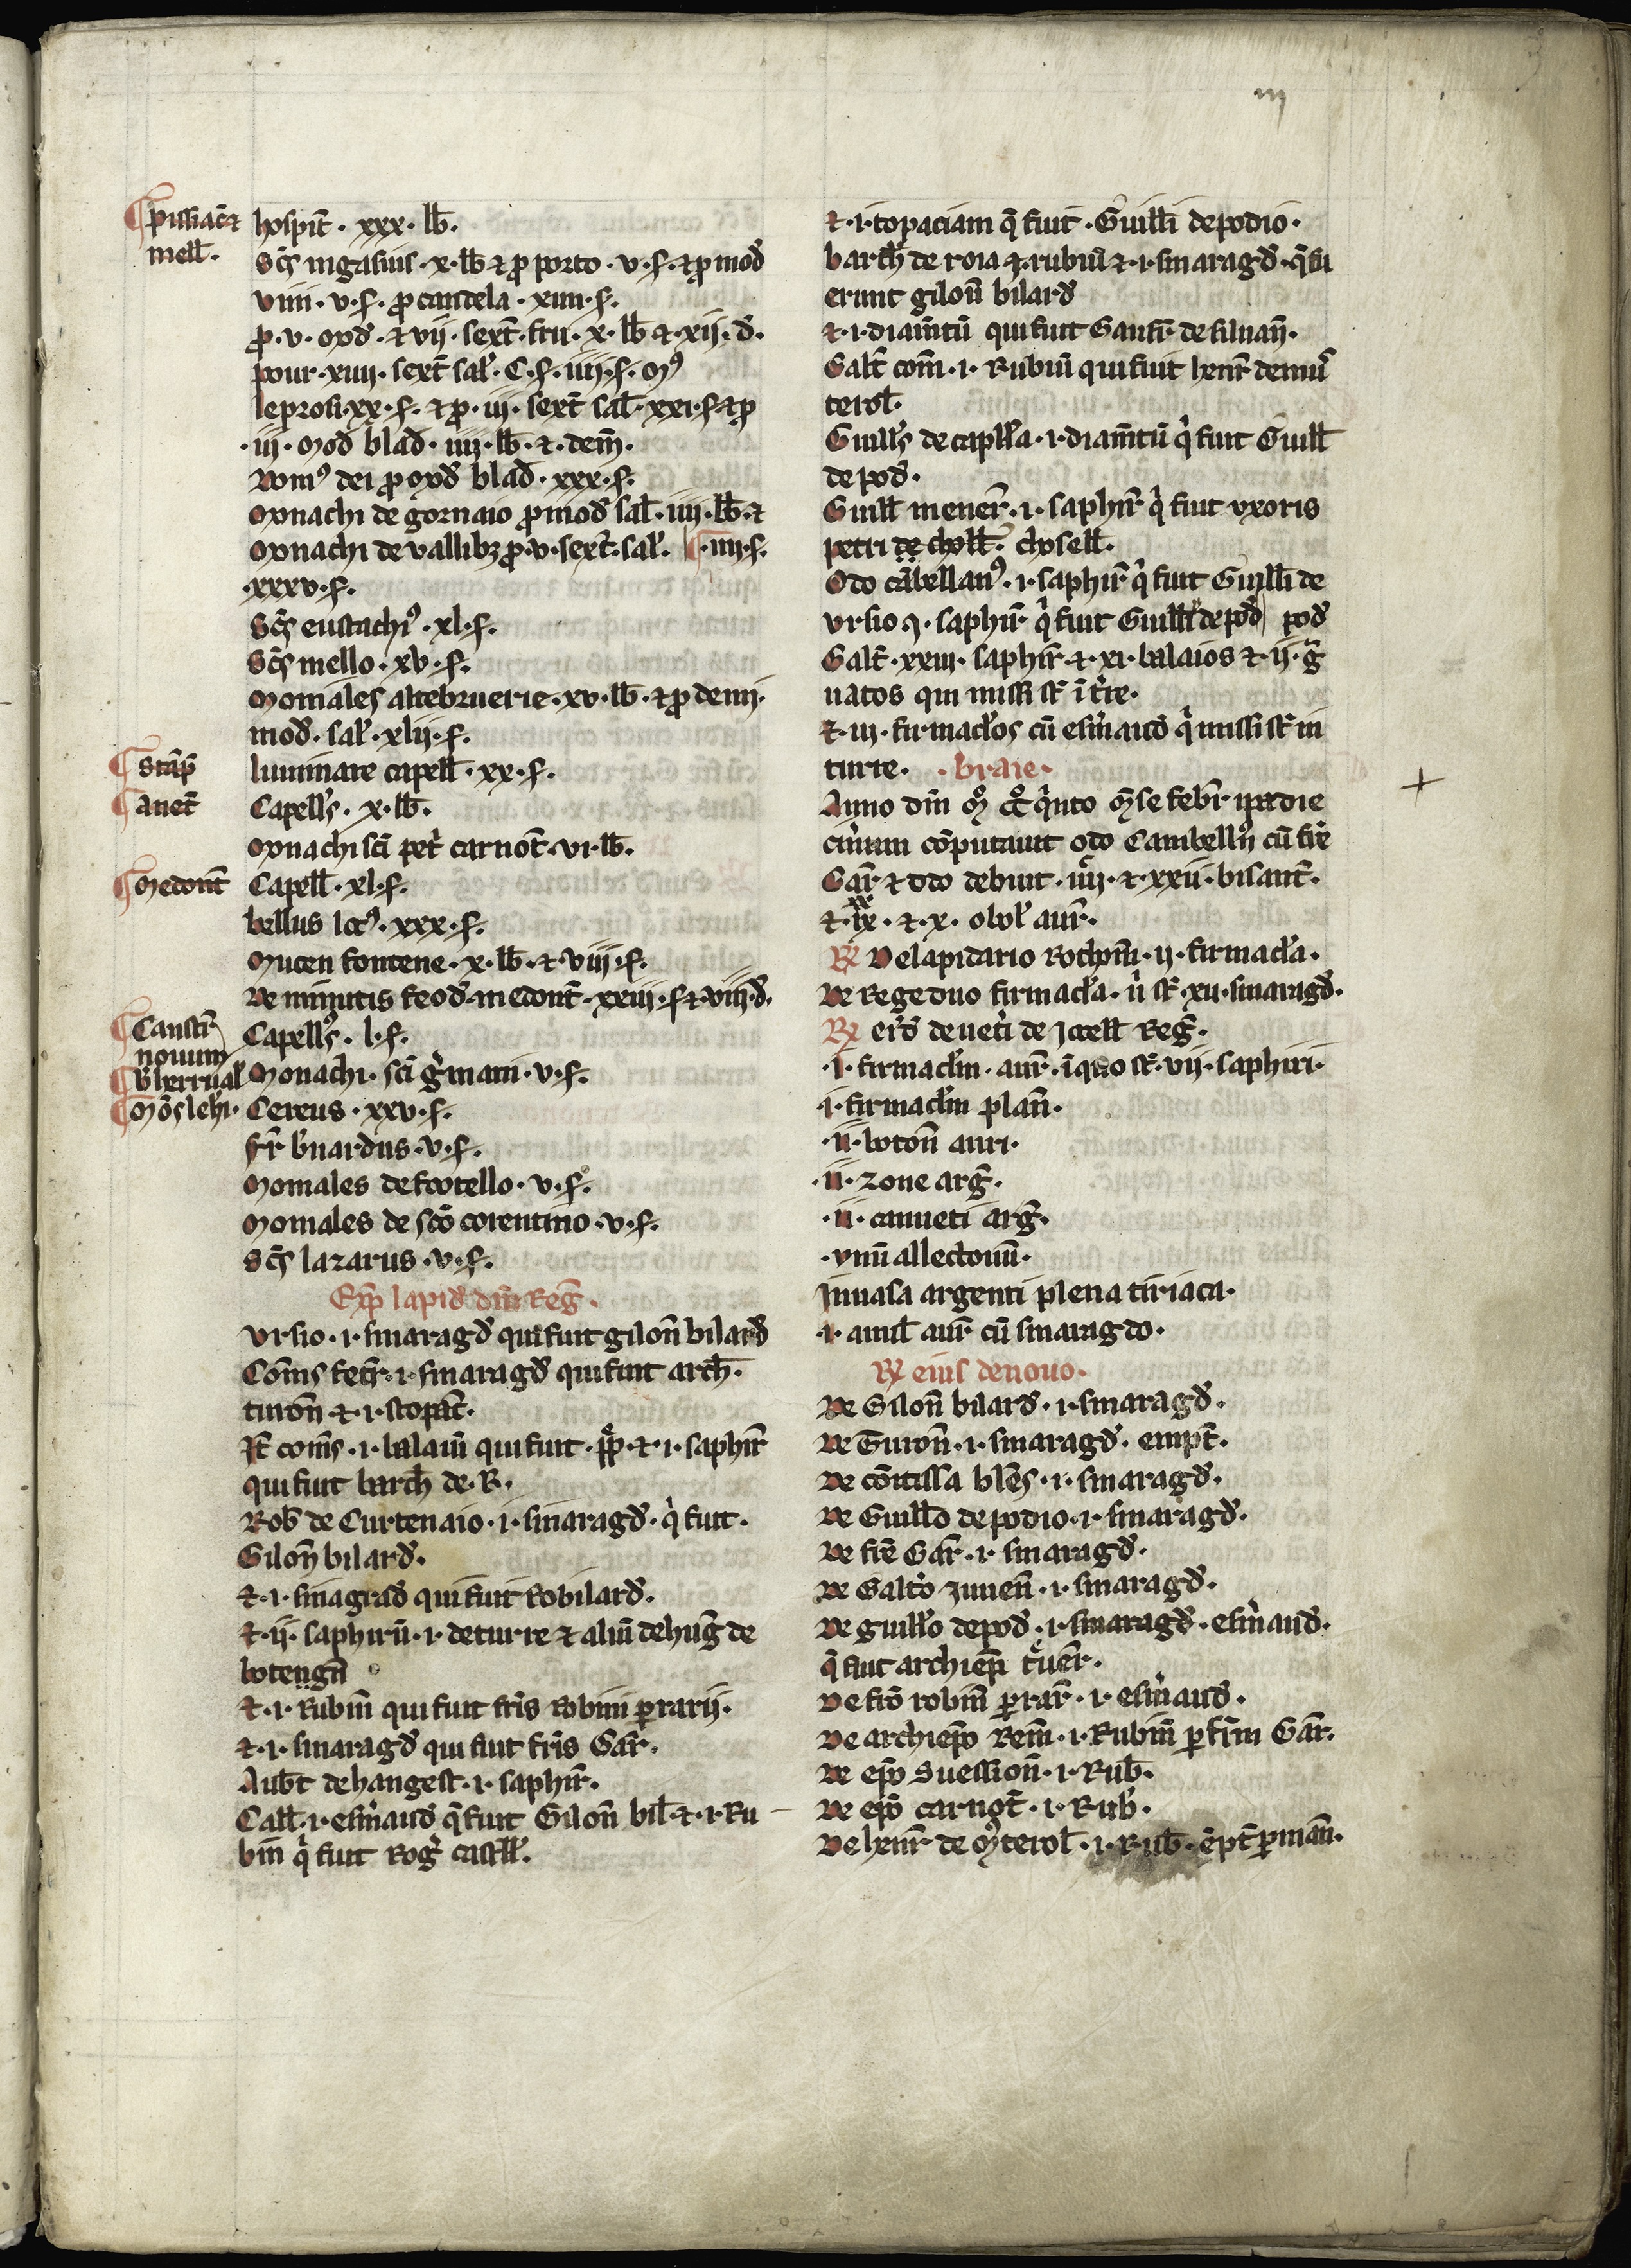 m
¶ pissiac̄ ⁊
mell̄.
hospit̄ · xxx · lb̄.
Sc̄s nigasius · x · lb̄ ⁊ ꝓ porto · v · s̄ · ⁊ ꝓ mod̄
viiii · v · s̄ · ꝓ candela · xiiii · s̄.
ꝓ · v · mod̄ · ⁊ vij · sext̄ · fru · x · lb̄ ⁊ · xij · d̄.
pour · xiiij · sext̄ sal̄ · C · s̄ · iiij · s̄ · mꝰ
leprosi · xx · s̄ · ⁊ ꝓ · iij · sext̄ sal̄ · xxi · s̄ ⁊ ꝓ
· iij · mod̄ blad̄ · iiij · lb̄ · ⁊ · dem̄.
Domꝰ dei ꝓ mod̄ blad̄ · xxx · s̄.
Monachi de gornaio ꝓ mod̄ sal̄ · iiij · lb̄ · ⁊
Monachi de vallibꝫ ꝓ · v · sext̄ · sal̄. ¶ · iiij · s̄.
· xxxv · s̄.
Sc̄s eustachiꝰ · xl · s̄.
Sc̄s mello · xv · s̄.
Moniales altebruerie · xv · lb̄ · ⁊ ꝓ demij ·
mod̄ · sal̄ · xlij · s̄.
¶ stāp̄
luminare capell̄ · xx · s̄.
¶ anet̄
Capell̄s · x · lb̄.
Monachi sc̄i pet̄ carnot̄ · vi · lb̄.
¶ Medont̄
Capell̄ · xl · s̄.
bellus locꝰ · xxx · s̄.
Mucen fontene · x · lb̄ · ⁊ viij · s̄.
De minutis feod̄ · medont̄ · xxiij · s̄ ⁊ viiij · d̄.
¶ Castr̄
nouum
Capell̄s · l · s̄.
Monachi · sc̄i g̾mani · v · s̄.
Cereus · xxv · s̄.
fr̄ b̄nardus · v · s̄.
Moniales de footello · v · s̄.
Moniales de sc̄o corentino · v · s̄.
Sc̄s lazarus · v · s̄.
Exp̄ lapid̄ dn̄i Reḡ.
Vrsio · i · smaragd̄ qui fuit gilon̄ bilard̄
Com̄s fetr̄ · i · smaragd̄ qui fuit arch̄.
turon̄ ⁊ · i · stopac̄.
R̄ com̄s · i · balaiū qui fuit · pp̄ · ⁊ · i · saphir̄
qui fuit barth̄ de · R ·.
Rob̄ de Curtenaio · i · smaragd̄ · q̇ fuit ·
Gilon̄ bilard̄.
⁊ · i · smagrad̄ qui fuit Robilard̄.
⁊ · ij · saphirū · i · de turre ⁊ aliū de huḡ de
botengn̄
⁊ · i · Rubin̄ qui fuit fr̄is Robini ꝑrarij.
⁊ · i · smaragd̄ qui fuit fr̄is Gar̄.
Aub̄t de hangest · i · saphir̄.
Call̄ · i · esm̄aud̄ q̇ fuit Gilon̄ bil̄ · ⁊ · i · Ru
bin̄ q̇ fuit Roḡ castell̄.
⁊ · i · topaciam q̄ fuit · Guill̄i de podio ·
barth̄ de roia · i · rubiū ⁊ · i · smaragd̄ · q̇ fu
erunt gilon̄ bilard̄
⁊ · i · diam̄tū qui fuit Gaufr̄ de siluan̄.
Galt̄ com̄ · i · Rubiū qui fuit henr̄ de mū
terol̄.
Guill̄s de capll̄a · i · diam̄tū q̇ fuit Guill̄
de pod̄.
Guill̄ mener̄ · i · saphir̄ q̇ fuit vxoris
petri de choll̄ · choisell̄.
Odo cābellanꝰ · i · saphir̄ q̇ fuit Guill̄i de
vrsio · i · saphir̄ q̇ fuit Guill̄i de pod̄ pod̄
Galt̄ · xxiij · saphir̄ ⁊ · xi · balaios ⁊ · ij · g̾
natos qui missi st̄ ī t̾re.
⁊ · iij · firmacl̄os cū esm̄aud̄ q̇ missi st̄ in
turre. · braie ·
Anno dn̄i mͦ ccͦ q̇nto m̄se febr̄ pridie
cin̄um cōputauit odo Cambell̄ꝰ cū fr̄e
Gar̄ ⁊ odo debuit · iiij · ⁊ · xxii · bisant̄.
⁊ · ix · ⁊ · x · obol̄ aur̄.
℞ De lapidario Rothom̄ · ij · firmacl̄a.
De Rege duo firmacl̄a · ū st̄ · xij · smaragd̄.
℞ ei̾d̄ de vet̄i de jocell̄ Reḡ.
· i · firmacl̄m · aur̄ · ī quo st̄ · vij · saphiri ·
· i · firmacl̄m plan̄.
· ii · boton̄ auri ·
· ii · zone arḡ.
· ii · canueti arḡ.
· vnū allectoriū ·
j uuasa argenti plena tiriaca ·
· i · anul̄ aur̄ cū smaragdo ·
℞ eius de nouo ·
De Gilon̄ bilard̄ · i · smaragd̄.
De Turon̄ · i · smaragd̄ · empt̄.
De cōitissa bles̄ · i · smaragd̄.
De Guill̄o de podio · i · smaragd̄.
De fr̄e Gar̄ · i · smaragd̄.
De Galt̄o iuuen̄ · i · smaragd̄.
De guill̄o de pod̄ · i · smaragd̄ · esm̄aud̄ ·
q̇ fuit archiep̄i
De fr̄o robin̄ ꝑrar̄ · i · esm̄aud̄.
De archiep̄o Rem̄ · i · Rubin̄ ꝑ fr̄m Gar̄.
De ep̄o suession̄ · i · Rub̄.
De ep̄o carnot̄ · i · Rub̄.
De henr̄ de mꝰterol̄ · i · Rub̄ · ēpt̄ ꝑ man̄.